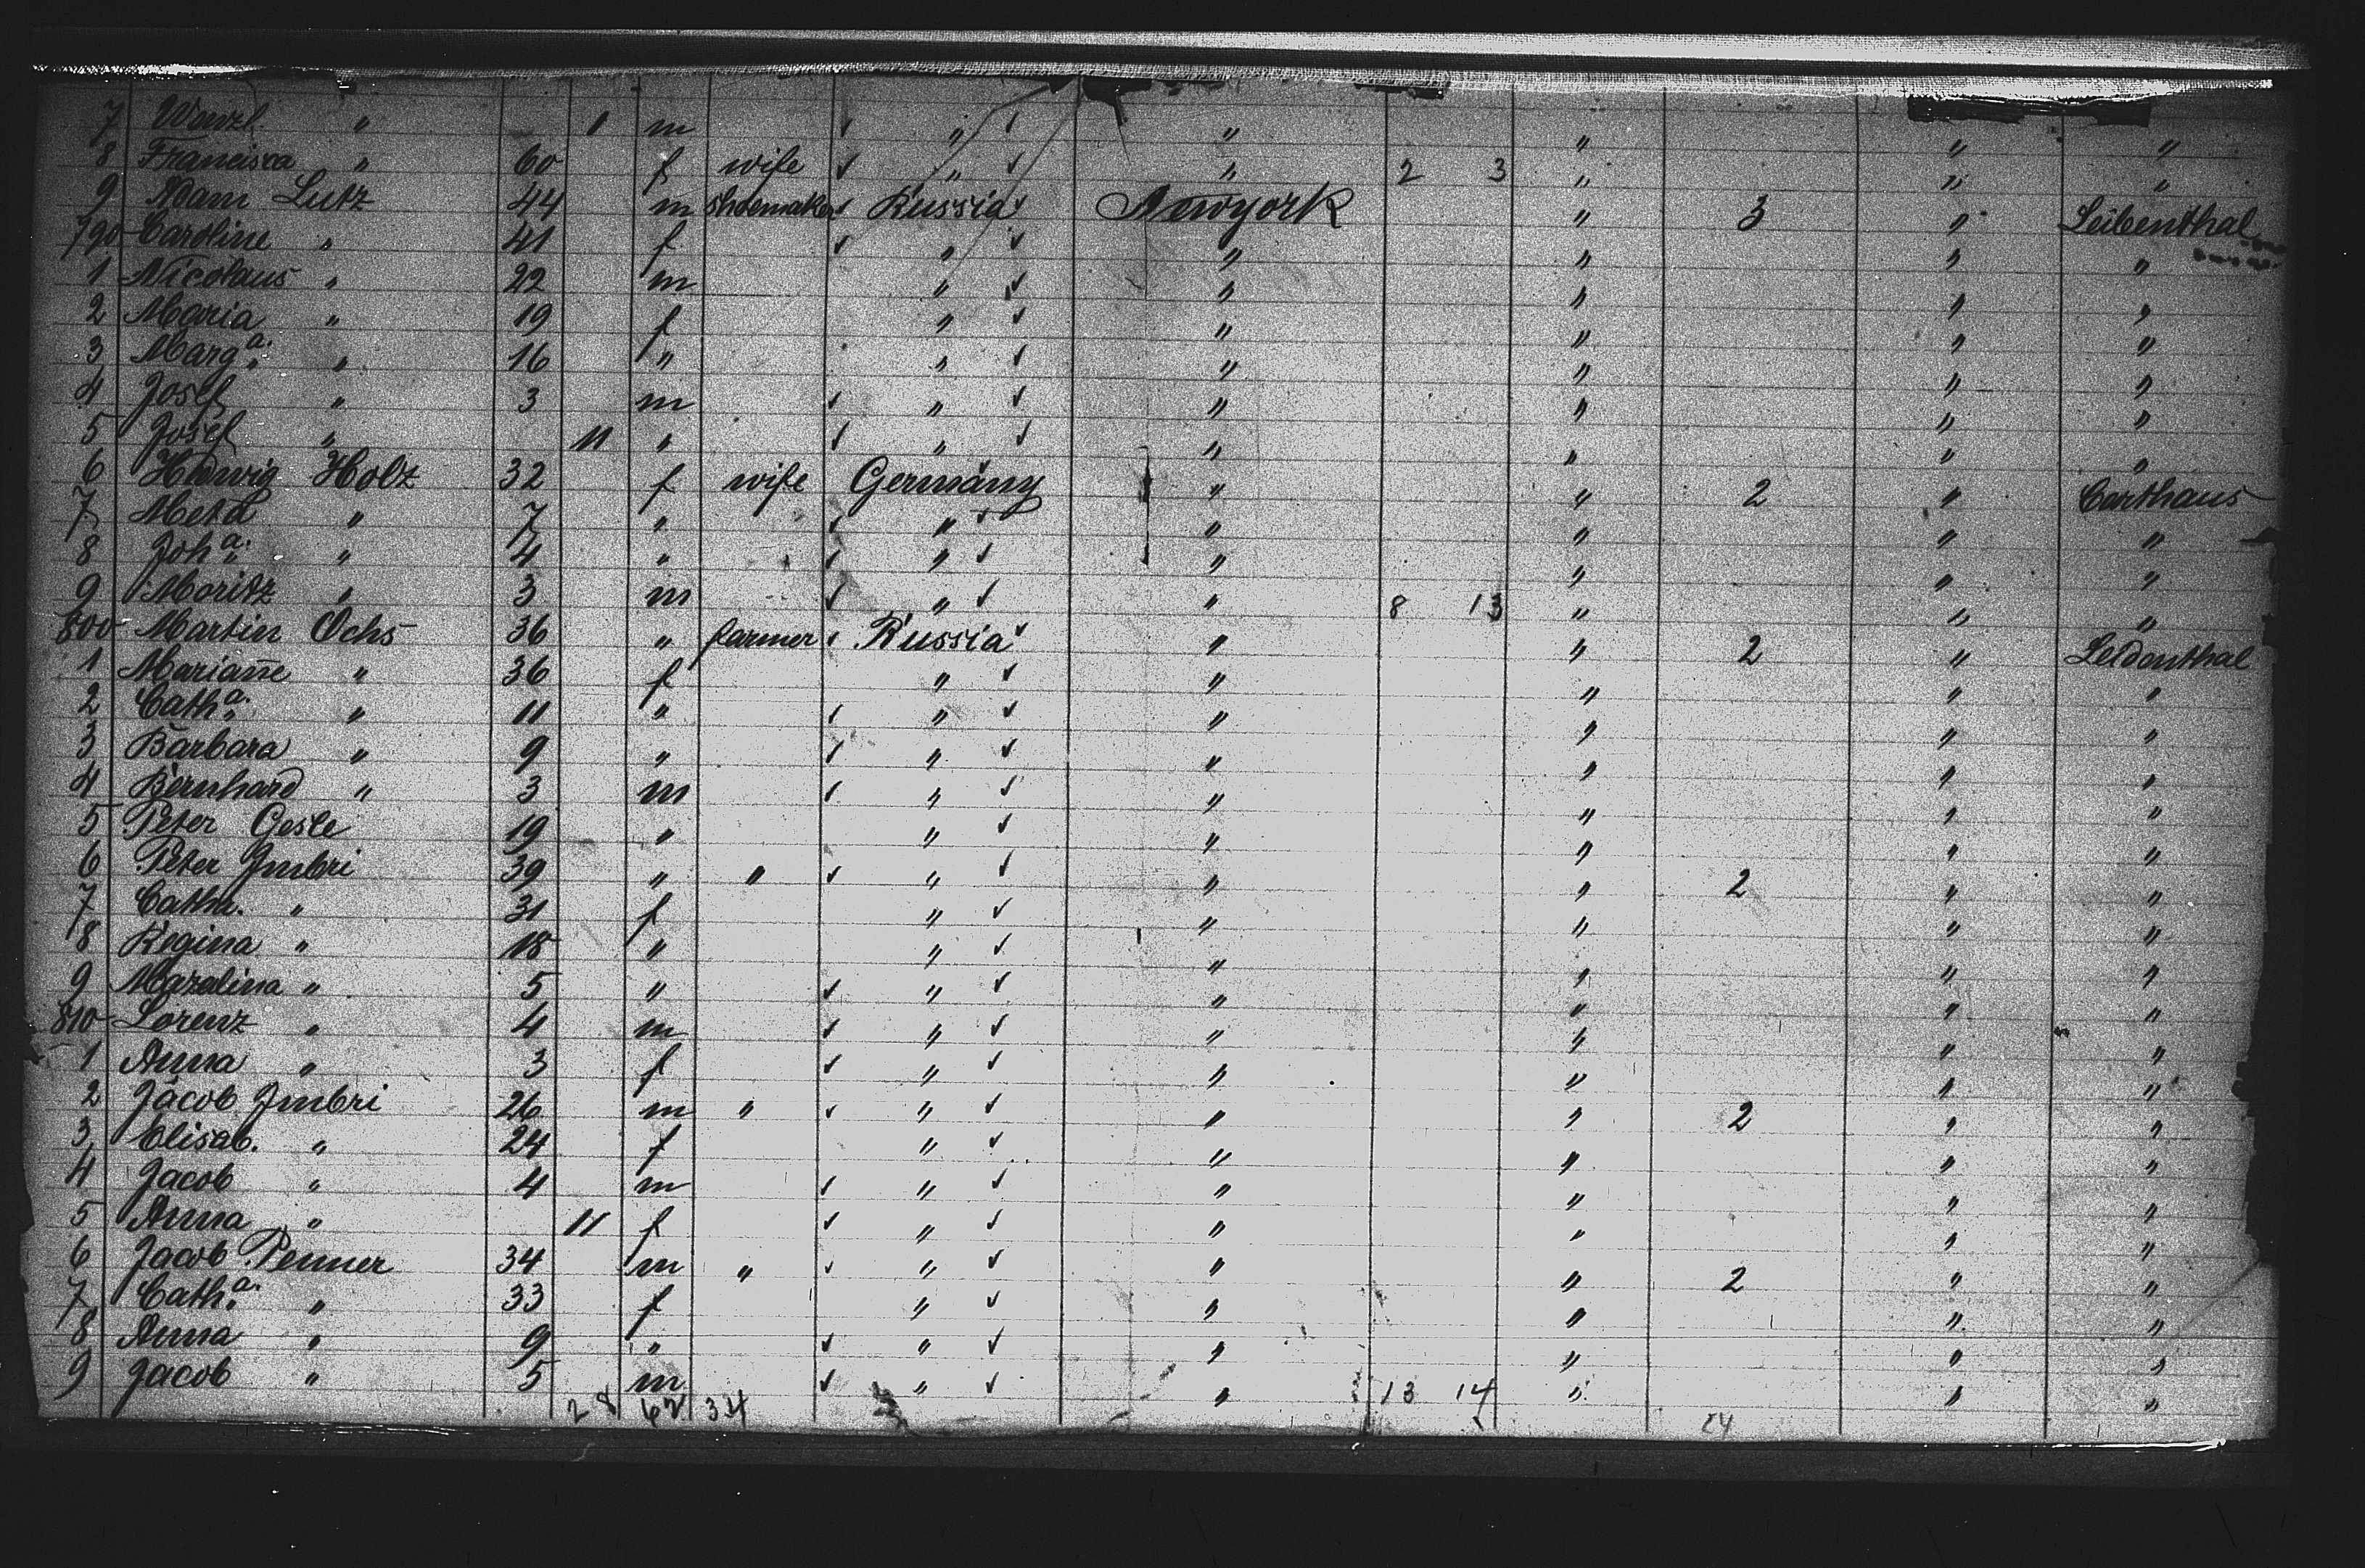 7 Wenzl " 1 m " " " " "
8 Francisca " 60 f wife " " 2 3 " " "
9 Adam Lutz 44 m shoemaker Russia Newyork " 3 " Leibenthal
790 Caroline " 41 f " " " " "
1 Nicolaus " 22 m " " " " "
2 Maria " 19 f " " " " "
3 Marg a. " 16 " " " " " "
4 Josef " 3 m " " " " "
5 Josef " 11 " " " " " "
6 Hedwig Holz 32 f wife Germany " " 2 " Carthaus
7 Meta " 7 " " " " " "
8 Joh a. " 4 " " " " " "
9 Moritz " 3 m " " 8 13 " " "
800 Martin Ochs 36 " farmer Russia " " 2 " Leidenthal
1 Marian̄e " 36 f " " " " "
2 Cath a. " 11 " " " " " "
3 Barbara " 9 " " " " " "
4 Bernhard " 3 m " " " " "
5 Peter Gesle 19 " " " " " "
6 Peter Jmbri 39 " " " " " 2 " "
7 Catha. " 31 f " " " " "
8 Regina " 18 " " " " " "
9 Mazalina " 5 " " " " " "
810 Lorenz " 4 m " " " " "
1 Anna " 3 f " " " " "
2 Jacob Jmbri 26 m " " " " 2 " "
3 Elisab. " 24 f " " " " "
4 Jacob " 4 m " " " " "
5 Anna " 11 f " " " " "
6 Jacob Penner 34 m " " " " 2 " "
7 Cath a. " 33 f " " " " "
8 Anna " 9 " " " " " "
9 Jacob " 5 m " " 13 14 " " "
28 62 34 24